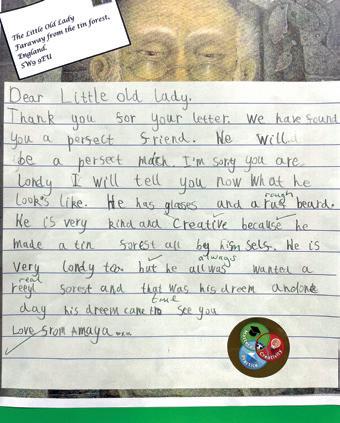 The Little Old Lady
Faraway from the tin forest,
England.
SW9 9EU
Dear Little old lady.
Thank you for your letter. We have found
you a persect friend. He will
be a persect mach. I'm sory you are
londy I will tell you now What he
look's like. He has glases and a ruf rough beard.
He is very kind and Creative because he
made a tin sorest all by him sels. He is
very londy too. but he all was always wanted a
real sorest and that was his dreem and one
day his dreem came true See you
Love from Amaya
Creativity